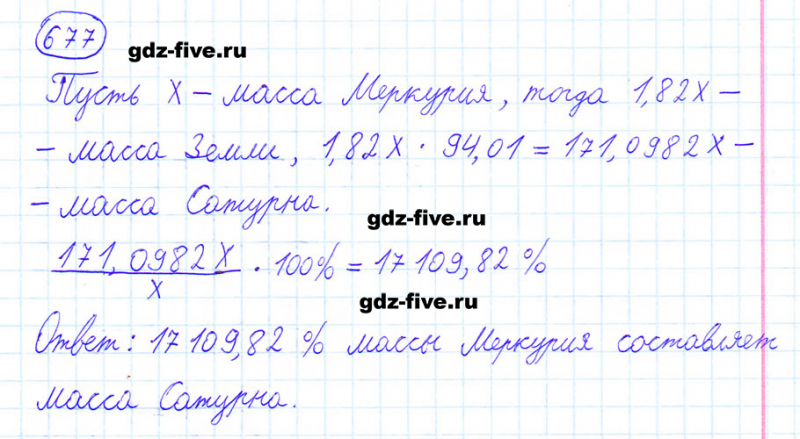 677
gdz-five.ru
Пусть X – масса Меркурия, тогда 1,82X –
– масса Земли, 1,82X · 94,01 = 171,0982X –
– масса Сатурна.
gdz-five.ru
171,0982X / X · 100% = 17109,82 %
gdz-five.ru
Ответ: 17109,82 % массы Меркурия составляет
масса Сатурна.